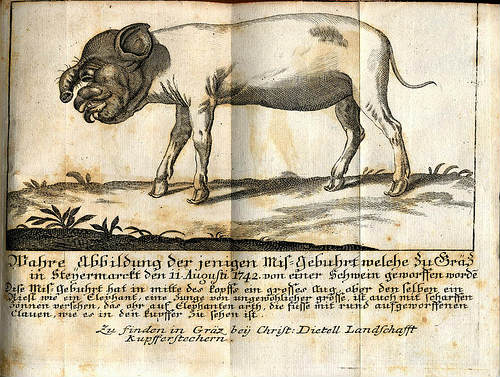 Wahre Abbildung der jenigen Mis-Gebuhrt welche zu Gräz
in Steyermarckt den 11 Augusti 1742. von einer Schwein geworffen worde
Dise Mis Gebuhrt hat in mitte des Kopffs ein grosses Aug, ober den selben ein
Riesl wie ein Elephant, eine Zunge von ungewöhlicher grösse, ist auch mit scharffen
Zönnen versehen, das ohr auf Elephanten arth, die füsse mit rund aufgeworffenen
Clauen, wie es in den kupffer zu sehen ist.
Zu finden in Gräz, beÿ Christ: Dietell Landschafft
Kupfferstechern.